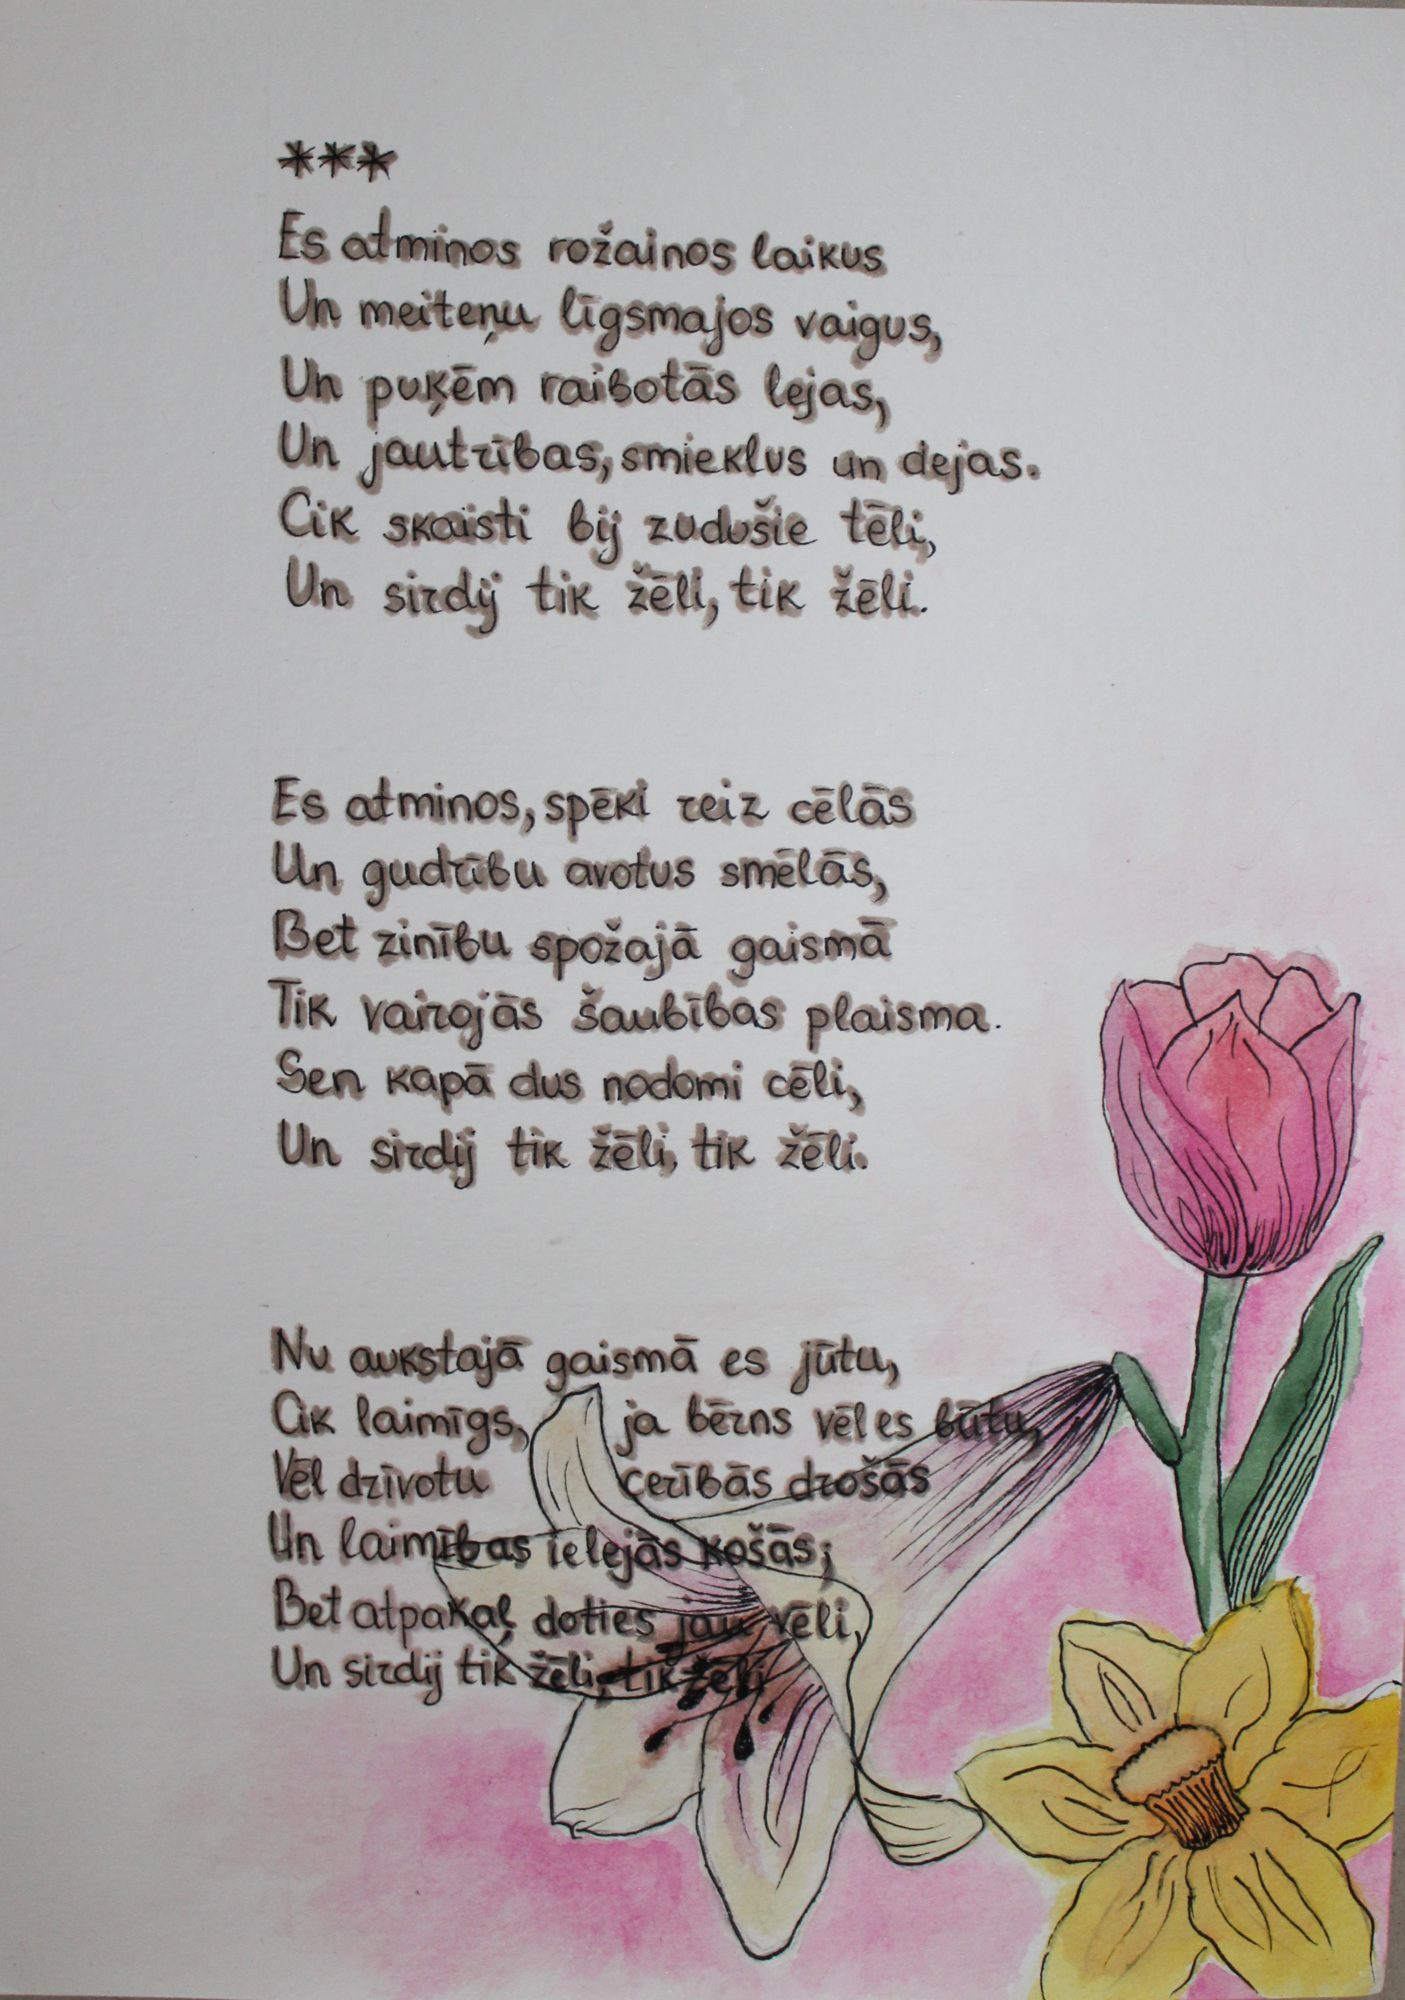 ***
Es atminos rožainos laikus
Un meiteņu līgsmajos vaigus,
Un puķēm raibotās lejas,
Un jautrības, smieklus un dejas.
Cik skaisti bij zudušie tēli,
Un sirdij tik žēli, tik žēli.
Es atminos, spēki reiz cēlās
Un gudrību avotus smēlās,
Bet zinību spožajā gaismā
Tik vairojās šaubības plaisma.
Sen kapā dus nodomi cēli,
Un sirdij tik žēli, tik žēli.
Nu aukstajā gaismā es jūtu,
Cik laimīgs, ja bērns vēl es būtu,
Vēl dzīvotu cerībās drošās
Un laimības ielejās košās;
Bet atpakaļ doties jau vēli,
Un sirdij tik žēli, tik žēli